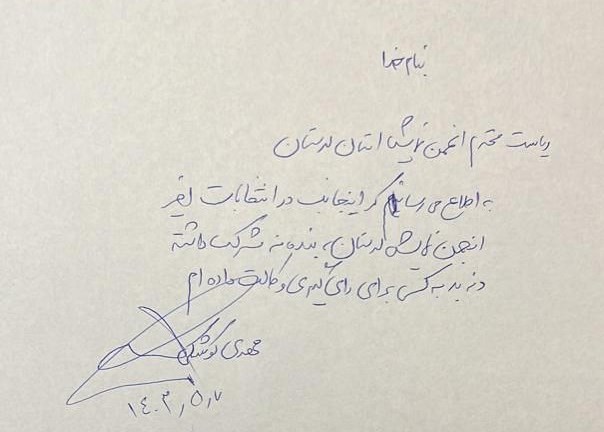 بنام خدا
ریاست محترم انجمن نمایش استان لرستان
به اطلاع می رسانم که اینجانب در انتخابات اخیر
انجمن نمایش لرستان، بنده نه شرکت داشته
و نه به کسی برای رای گیری وکالت داده ام
مهدی کوشکی
۱۴۰۳,۵,۷